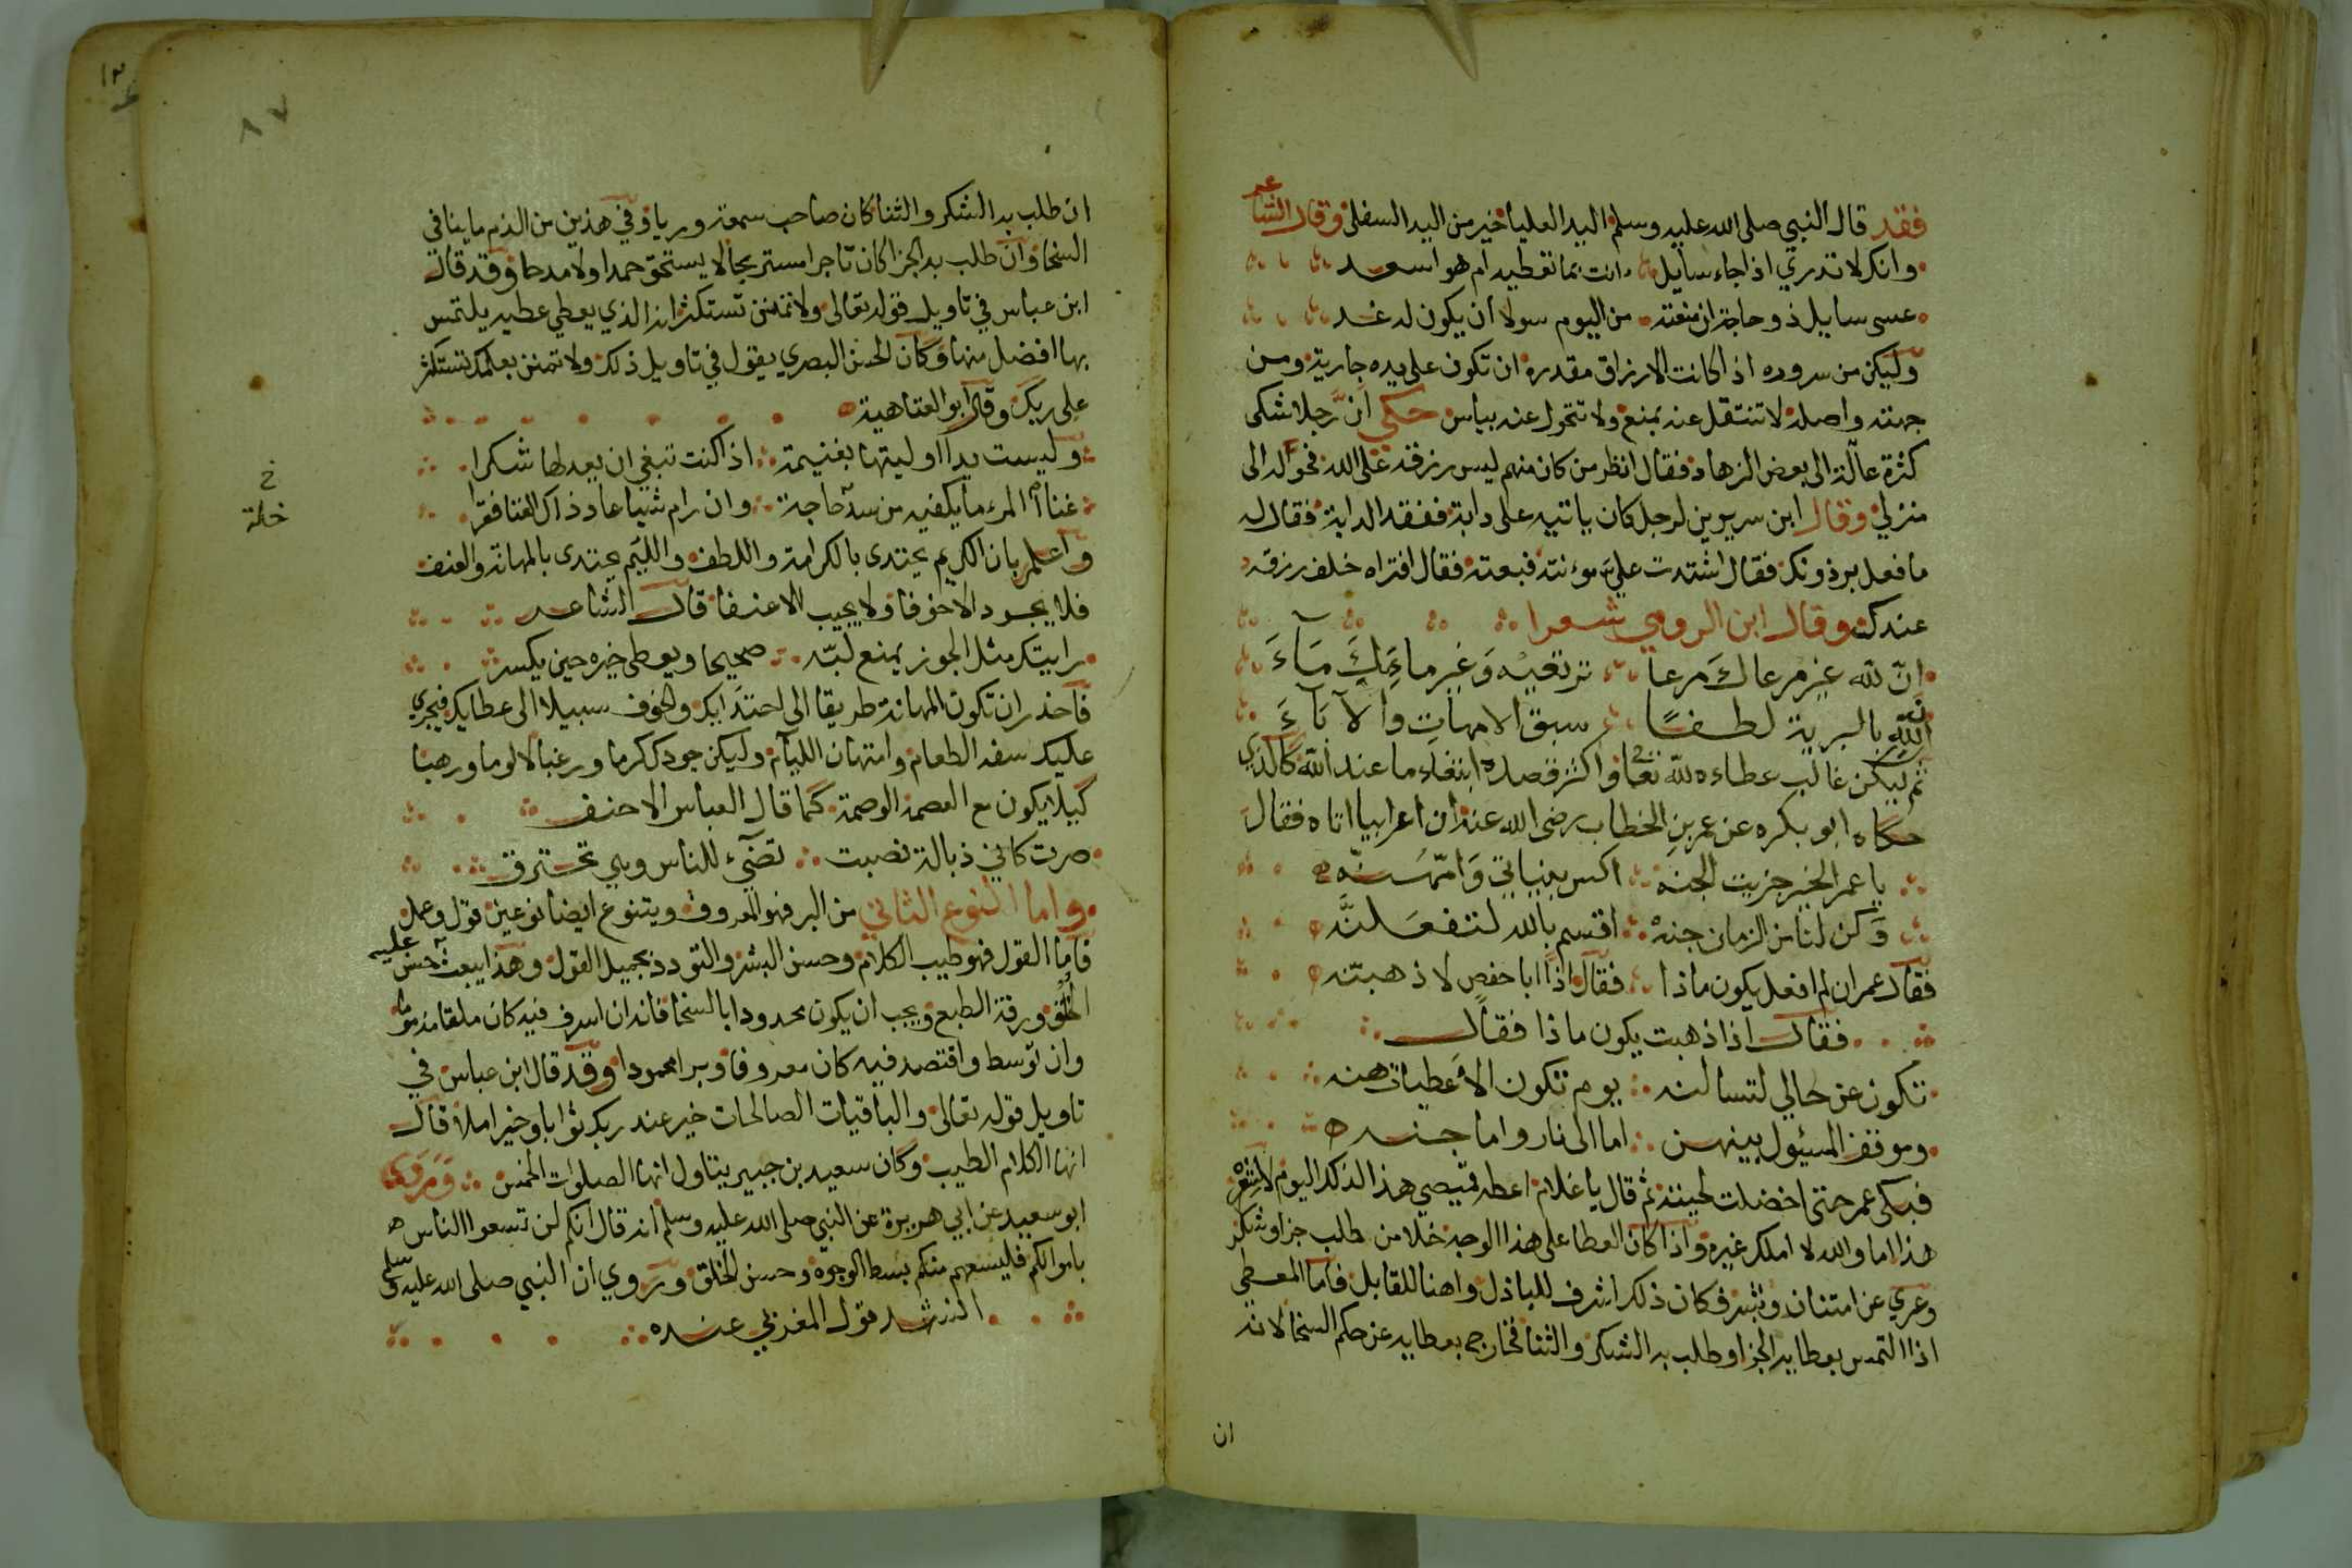 فقد قال النبي صلى الله عليه وسلم اليد العليا خير من اليد السفلى وقال الشاعر
وانك لا تدري اذا جاء سايل اانت بما تعطيه ام هو اسعد
عسى سايل ذو حاجة ان منعته من اليوم سولا ان يكون له غد
وليكن من سروره اذا كانت الارزاق مقدرة ان تكون على يده جارية ومن
جهته واصلة لا تنتقل عنه بمنع ولا تتحول عنه بياس حكي ان رجلا شكى
كثرة عالة الى بعض الزهاد فقال انظر من كان منهم ليس رزقه على الله فحوله الى
منزلي وقال ابن سيرين لرجل كان ياتيه على دابة ففقد الدابة فقال له
ما فعل برذونك فقال اشتدت علي موءنته فبعته فقال افتراه خلف رزقه
عندك وقال ابن الرومي شعرا
ان لله غير مرعاك مرعا ترتعيه وغير ماءك ماء
ان لله بالبرية لطفا سبق الامهات والاباء
ثم ليكن غالب عطاءه لله تعا واكثر قصده ابتغاء ما عند الله كالذي
حكاه ابو بكره عن عمر بن الخطاب رضى الله عنه ان اعرابيا اتاه فقال
يا عمر الخير جزيت الجنه اكس بنياتي وامهنه
وكن لنا من الزمان جنه اقسم بالله لتفعلنه
فقال عمر ان لم افعل يكون ماذا فقال اذا ابا حفص لاذهبنه
فقال اذا ذهبت يكون ماذا فقال
تكون عن حالي لتسالنه يوم تكون الاعطيات هنه
وموقف المسئول بينهن اما الى نار واما جنه
فبكى عمر حتى اخضلت لحيته ثم قال يا غلام اعطه قميصي هذا لذلك اليوم لا لشعره
هذا اما والله لا املك غيره واذا كان العطا على هذا الوجه خلا من طلب جزا وشكر
وعري عن امتنان ونشر فكان ذلك اشرف للباذل واهنا للقابل فاما المعطي
اذا التمس بعطايه الجزا وطلب به الشكر والثنا فخارج بعطايه عن حكم السخا لانه
ان
٨٧
ان طلب به الشكر والثنا كان صاحب سمعة وريا وفي هذين من الذم ما ينافي
السخا وان طلب به الجزا كان تاجرا مستربحا لا يستحق حمدا ولا مدحا وقد قال
ابن عباس في تاويل قوله تعالى ولا تمنن تستكثر انه الذي يعطي عطيه يلتمس
بها افضل منها وكان الحسن البصري يقول في تاويل ذلك ولا تمنن بعملك تستكثر
على ربك وقال ابو العتاهية
وليست يدا اوليتها بغنيمة اذا كنت تبغي ان يعد لها شكرا
غنا المرء ما يكفيه من سد حاجة وان رام شيا عاد ذاك الغنا فقرا
خ
خلة
واعلم بان الكريم يجتدى بالكرامة واللطف واللئيم يجتدى بالمهانة والعنف
فلا يجود الا خوفا ولا يجيب الا عنفا قال الشاعر
رايتك مثل الجوز يمنع لبه صحيحا ويعطى خيره حين يكسر
فاحذر ان تكون المهانة طريقا الى اجتدايك والخوف سبيلا الى عطايك فيجري
عليك سفه الطعام وامتهان الليام وليكن جودك كرما ورغبا لا لوما ورهبا
كيلا يكون مع العصمة الوصمة كما قال العباس الاحنف
صرت كاني ذبالة نصبت تضيء للناس وهي تحترق
واما النوع الثاني من البر فهو المعروف ويتنوع ايضا نوعين قول وعمل
فاما القول فهو طيب الكلام وحسن البشر والتودد بجميل القول وهذا يبعث عليه حسن
الخلق ورقة الطبع ويجب ان يكون محدودا بالسخا فانه ان اسرف فيه كان ملقا مذموما
وان توسط واقتصد فيه كان معروفا وبرا محمودا وقد قال ابن عباس في
تاويل قوله تعالى والباقيات الصالحات خير عند ربك ثوابا وخير املا قال
انها الكلام الطيب وكان سعيد بن جبير يتاول انها الصلوات الخمس وروى
ابو سعيد عن ابي هريرة عن النبي صلى الله عليه وسلم انه قال انكم لن تسعوا الناس
باموالكم فليسعهم منكم بسط الوجوه وحسن الخلق وروي ان النبي صلى الله عليه وسلم
انشد قول المغربي عنده